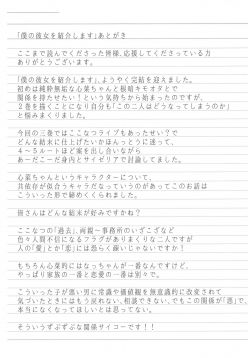 「僕の彼女を紹介します」あとがき
ここまで読んでくださった皆様、応援してくださっている方
ありがとうございます。
「僕の彼女を紹介します」、ようやく完結を迎えました。
初めは純粋無垢な心菜ちゃんと根暗キモオタとで
関係を持たせたい！という気持ちから始まったのですが、
２巻を描くことになり自分も「この二人はどうなってしまうのか」
と悩みまくりました。
今回の三巻ではここなつライブもあったせい？で
どんな結末に仕上げたいかほんっとうに迷って、
４～５ルートほど案を出し合いながら
あーだこーだ身内とサイゼリアで討論してました。
心菜ちゃんというキャラクターについて、
共依存が似合うキャラだなっていうのがあってこのお話は
こういった形で締めくくられました。
皆さんはどんな結末が好みですかね？
ここなつの「過去」、両親―事務所のいざこざなど
色々人間不信になるフラグがありまくりな二人ですが
人の「愛」とか「恋」には恐らく疎いじゃないですか！
もちろん心菜的にはなっちゃんが一番なんですけど、
やっぱり家族の一番と恋愛の一番は別々で。
こういった子が悪い男に常識や価値観を無意識的に改変されて
気づいたときにはもう戻れない、相談できない、でもこの関係が「悪」で、
本当になくなってほしいとは思ってない。
そういうずぶずぶな関係サイコーです！！